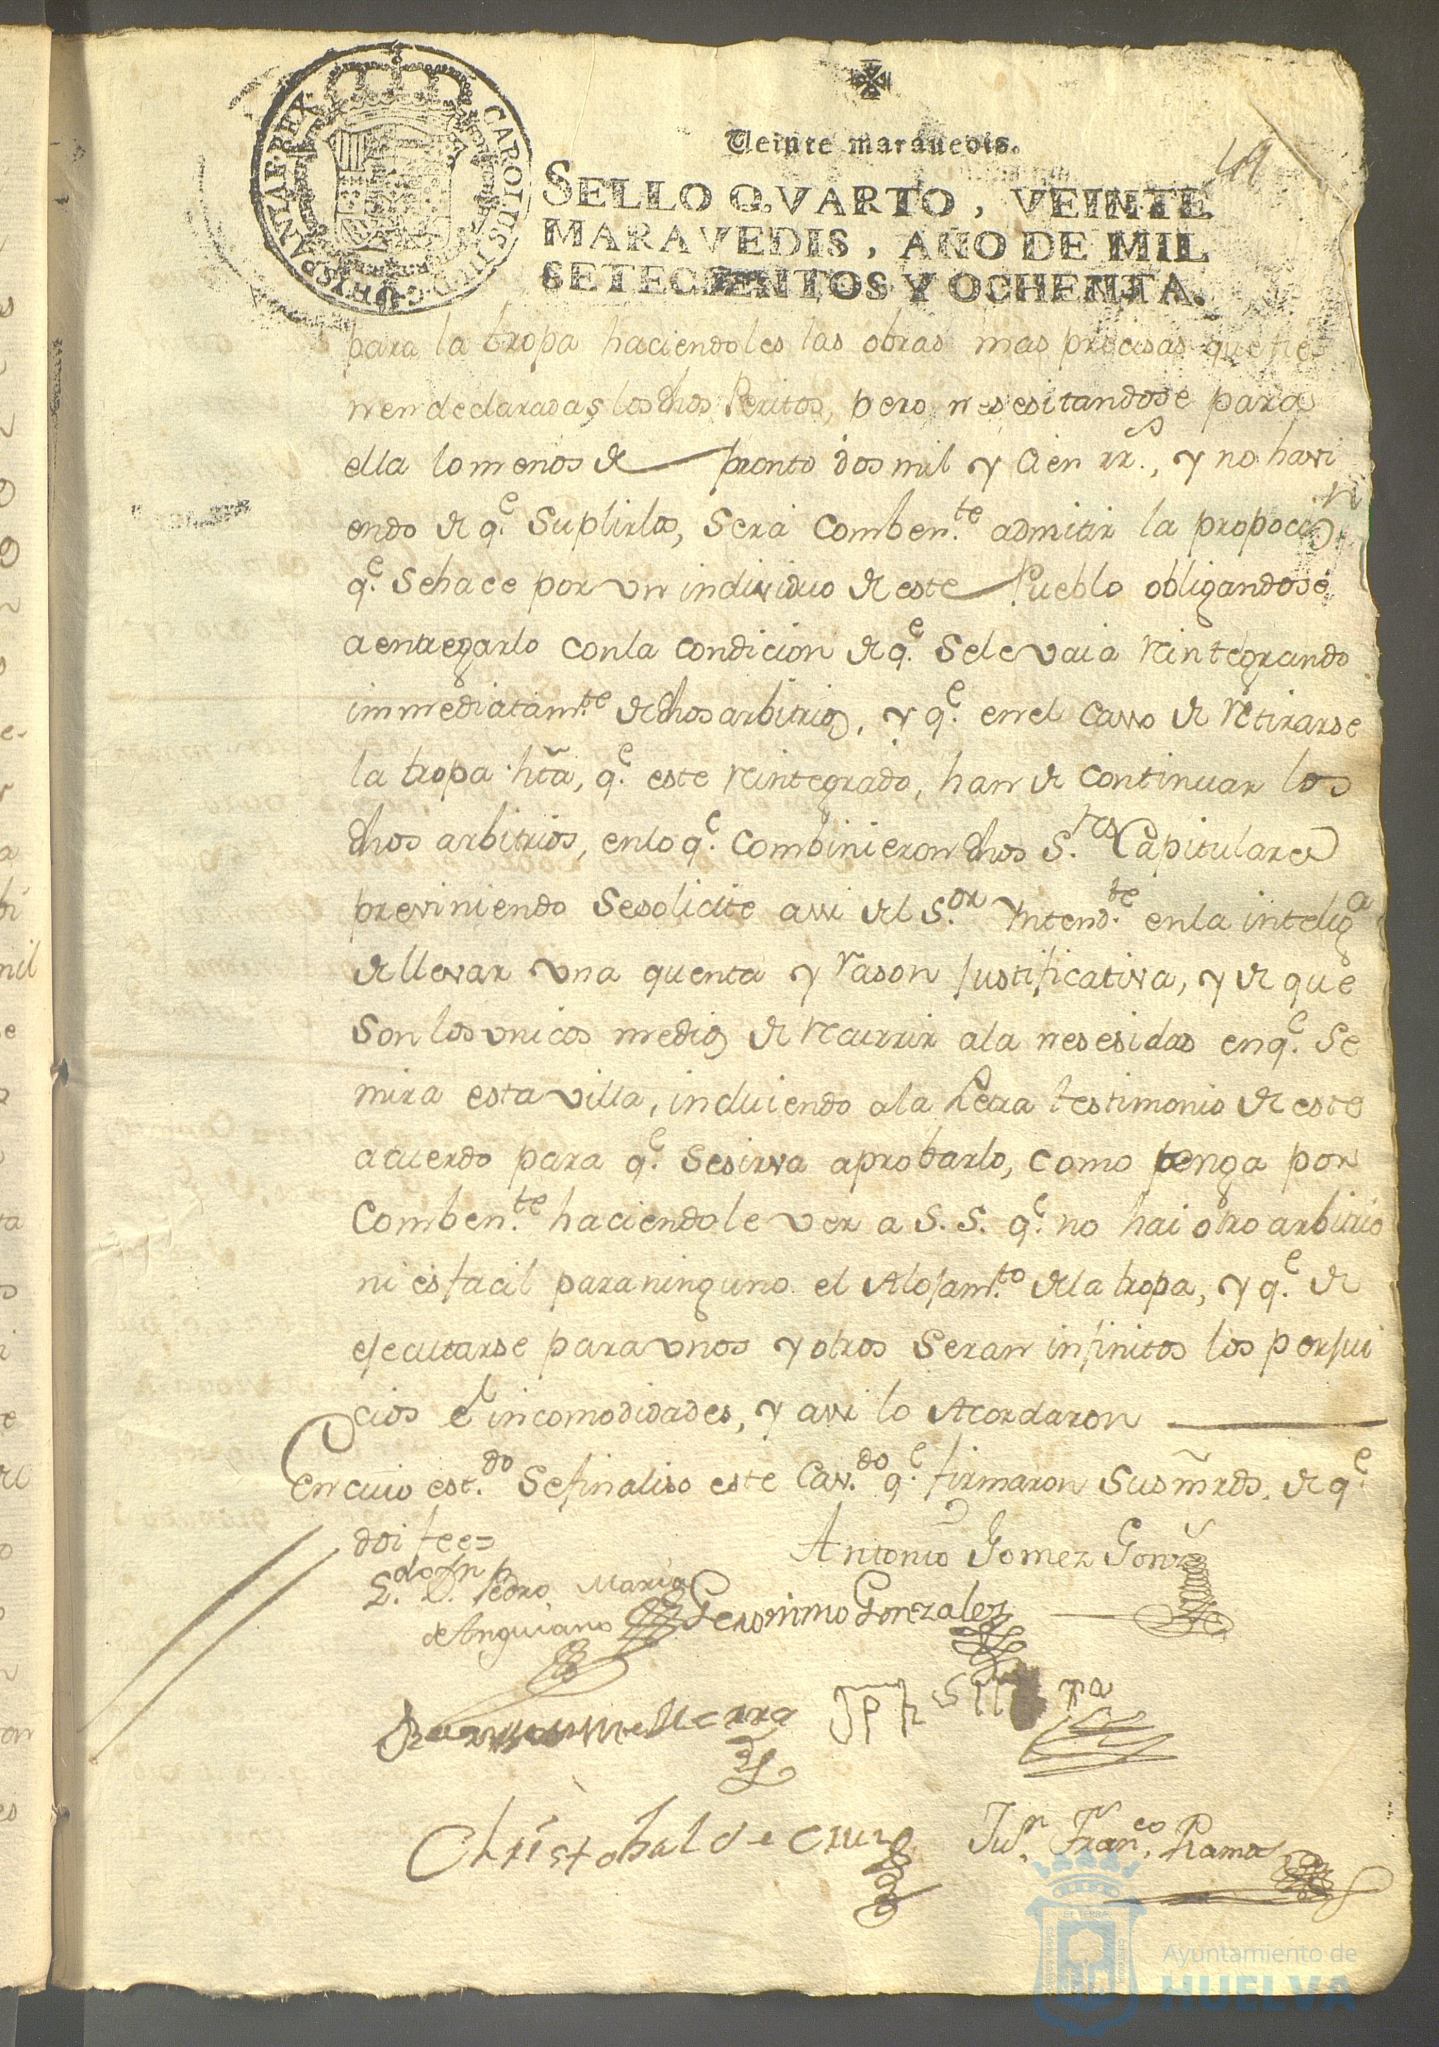 CAROLUS III D.G. HISPANIAR. REX
Veinte maravedis.
SELLO QVARTO, VEINTE
MARAVEDIS, AÑO DE MIL
SETECIENTOS Y OCHENTA.
para la tropa haciendoles las obras mas precisas que tie
nen declaradas los dhos Peritos, pero nesesitandose para
ella lo menos de pronto dos mil y Cien rr.s, y no havi
endo de q.e Suplirlos, Será Comben.te admitir la propocin
q.e Se hace por un individuo de este Pueblo obligandose
a entregarlo con la condicion de q.e Se le vaia reintegrando
immediatam.te de dhos arbitrios, y q.e en el Casso de retirarse
la tropa hta, q.e este reintegrado, han de continuar los
dhos arbitrios, en lo q.e Combinieron dhos S.res Capitulares
previniendo Se solicite assi del S.or Yntend.te en la intelig.a
de llevar una quenta y rason Justificativa, y de que
Son los unicos medios de recurrir a la nesesidad en q.e Se
mira esta villa, incluiendo a la Letra testimonio de este
acuerdo para q.e Se sirva aprobarlo, como tenga por
Comben.te haciendole ver a S. S. q.e no hai otro arbitrio
ni es facil para ninguno el Alojam.to de la tropa, y q.e de
ejecutarse para unos y otros Seran infinitos los perjui
cios é incomodidades, y assi lo Acordaron
En cuio est.do Se finaliso este Cav.do q.e firmaron Sus mrds. de q.e
doi fee=
Antonio Gomez Gonz
L.do Dn Pedro Maria
de Anguiano
Geronimo Gonzales
Christobal de Cruz
Jun. Fran.co Ramos
Ayuntamiento de
HUELVA